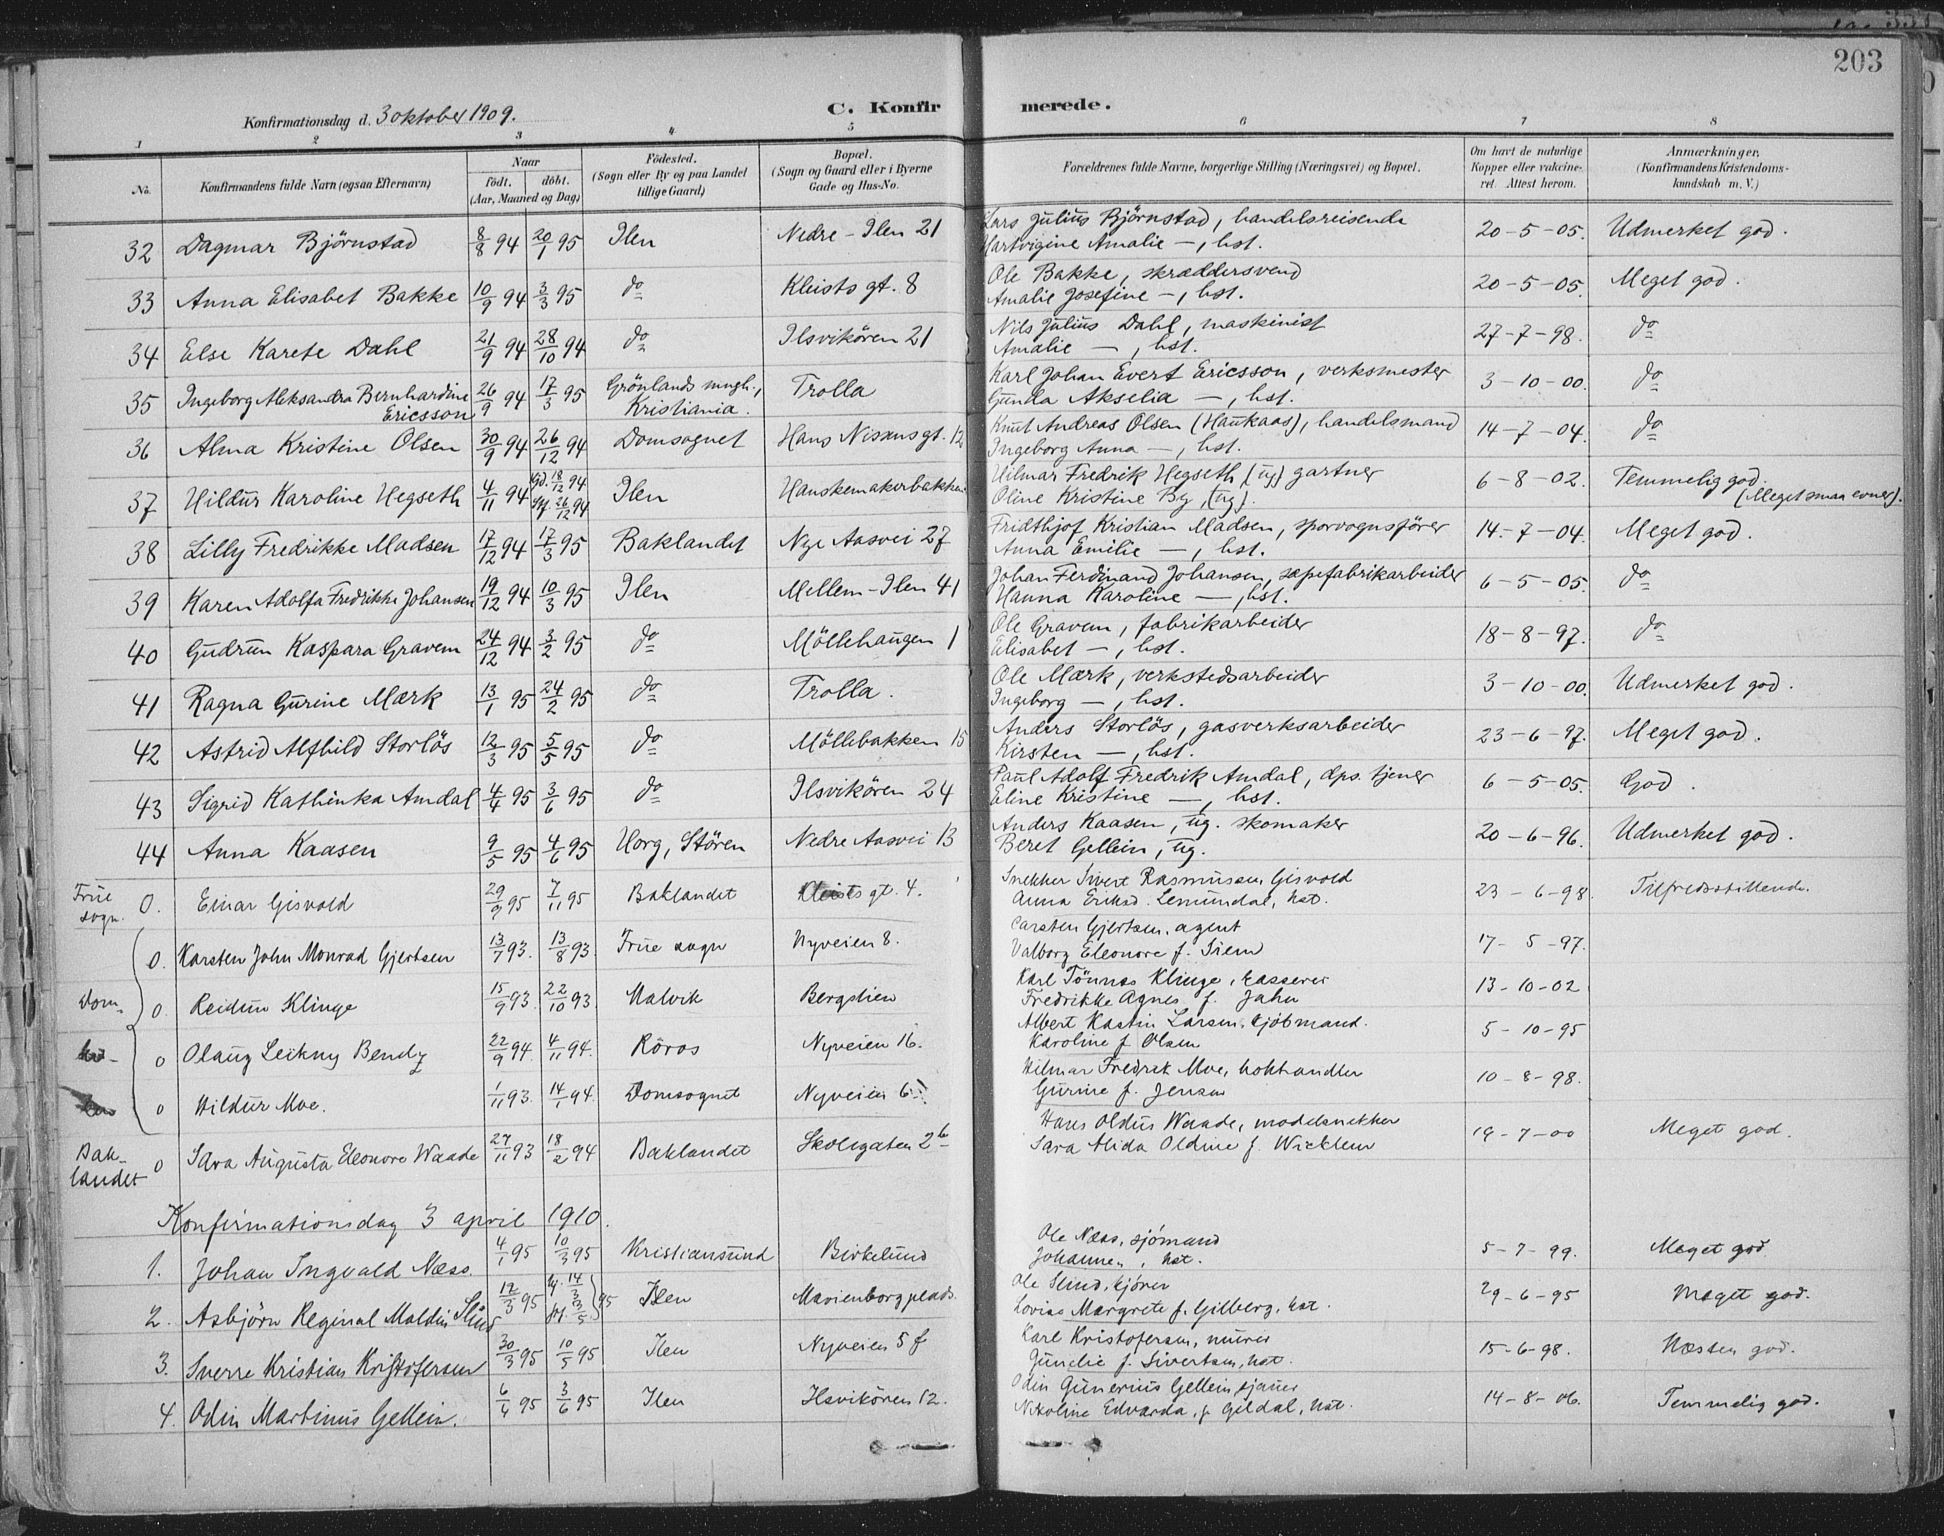 203
Konfirmationsdag d. 3 oktober 1909.
C. Konfirmerede.
1 2 3 4 5 6 7 8
No. Konfirmandens fulde Navn (ogsaa Efternavn) Naar födt. döbt. (Aar, Maaned og Dag) Födested. (Sogn eller By og paa Landet tillige Gaard) Bopæl. (Sogn og Gaard eller i Byerne Gade og Hus-No. Forældrenes fulde Navne, borgerlige Stilling (Næringsvei) og Bopæl. Om havt de naturlige Kopper eller vakcineret. Attest herom. Anmærkninger, (Konfirmandens Kristendomskundskab m. V.)
32 Dagmar Björnstad 8/8 94 20/1 95 Ilen Nedre-Ilen 21 Lars Julius Björnstad, handelsreisende Hartvigine Amalie —, hst. 20-5-05. Udmerket god.
33 Anna Elisabet Bakke 10/9 94 3/3 95 do Kleists gt. 8 Ole Bakke, skræddersvend Amalie Josefine —, hst. 20-5-05. Meget god.
34 Else Karete Dahl 21/9 94 28/10 94 do Ilsvikören 21 Nils Julius Dahl, maskinist Amalie —, hst. 27-7-98. do
35 Ingeborg Aleksandra Bernhardine Ericsson 26/9 94 17/3 95 Grönlands mngh., Kristiania. Trolla Karl Johan Evert Ericsson, verksmester Gunda Akselia —, hst. 3-10-00. do
36 Alma Kristine Olsen 30/9 94 26/12 94 Domsognet Hans Nissens gt. 12 Knut Andreas Olsen (Haukaas), handelsmand Ingeborg Anna —, hst. 14-7-04. do
37 Hildur Karoline Hegseth 4/11 94 hjd. 18/12 94 stf. 26/12 94 Ilen Hanskemakerbakken Hilmar Fredrik Hegseth (ug) gartner Oline Kristine By, (ug). 6-8-02. Temmelig god. (Meget smaa evner).
38 Lilly Fredrikke Madsen 17/12 94 17/3 95 Baklandet Nye Aasvei 27 Fridthjof Kristian Madsen, sporvognsförer Anna Emilie —, hst. 14-7-04. Meget god.
39 Karen Adolfa Fredrikke Johansen 19/12 94 10/3 95 Ilen Mellem-Ilen 41 Johan Ferdinand Johansen, sæpefabrikarbeider Hanna Karoline —, hst. 6-5-05. do
40 Gudrun Kaspara Gravem 24/12 94 3/2 95 do Möllehaugen 1 Ole Gravem, fabrikarbeider Elisabet —, hst. 18-8-97. do
41 Ragna Gurine Mærk 13/1 95 24/2 95 do Trolla. Ole Mærk, verkstedsarbeider Ingeborg —, hst. 3-10-00. Udmerket god.
42 Astrid Alfhild Storlös 13/3 95 5/5 95 do Möllebakken 15 Anders Storlös, gasverksarbeider Kirsten —, hst. 23-6-97. Meget god.
43 Sigrid Kathinka Amdal 4/4 95 3/6 95 do Ilsvikören 24 Paul Adolf Fredrik Amdal, dps. tjener Eline Kristine —, hst. 6-5-05. God.
44 Anna Kaasen 9/5 95 4/6 95 Horg, Stören Nedre Aasvei 13 Anders Kaasen, ug. skomaker Beret Gellein, ug. 20-6-96. Udmerket god.
Frue sogn. 0. Einar Gisvold 29/9 95 7/11 95 Baklandet Kleists gt. 4. Snekker Sivert Rasmussen Gisvold Anna Eriksd. Lemundal, hst. 23-6-98 Tilfredsstillende.
0. Karsten John Monrad Gjertsen 13/7 93. 13/8 93. Frue sogn Nyveien 8. Carsten Gjertsen, agent Valborg Eleonore f. Siem 17-5-97.
Dom- 0. Reidun Klinge 15/9 93. 22/10 93 Malvik Bergslien Karl Tönnes Klinge, kasserer Fredrikke Agnes f. Jahn 13-10-02
0 Olaug Leikny Bendz 22/9 94. 4/11 94. Röros Nyveien 16. Albert Kastin Larsen, kjöbmand. Karoline f. Olsen 5-10-95
0 Hildur Moe. 1/11 93. 14/1 94. Domsognet Nyveien 6 Hilmar Fredrik Moe, bokhandler Gurine f. Jensen 10-8-98.
Baklandet 0 Sara Augusta Eleonore Waade 27/11 93 18/2 94 Baklandet Skolegaten 2b Hans Oldus Waade, modelsnekker Sara Alida Oldine f. Wicklem 19-7-00 Meget god.
Konfirmationsdag 3 april 1910.
1. Johan Ingvald Næss. 4/1 95 10/3 95 Kristiansund Birkelund Ole Næss, sjömand Johanne „, hst. 5-7-99. Meget god
2. Asbjörn Reginal Maldin Slind 12/3 95 hj. 14/3 95 Ilen Marienborg plads. Ole Slind, kjörer Lovise Margrete f. Gilberg, hst. 29-6-95 Meget god.
3. Sverre Kristian Kristofersen 30/3 95 10/5 95 Ilen Nyveien 5 f Karl Kristofersen, murer Gunelie f. Sivertsen, hst. 15-6-98. Næsten god.
4. Odin Martinus Gellein. 6/4 95 3/6 95 Ilen Ilsvikören 12. Odin Gunerius Gellein, sjauer Nikoline Edvarda, f. Gildal, hst. 14-8-06. Temmelig god.